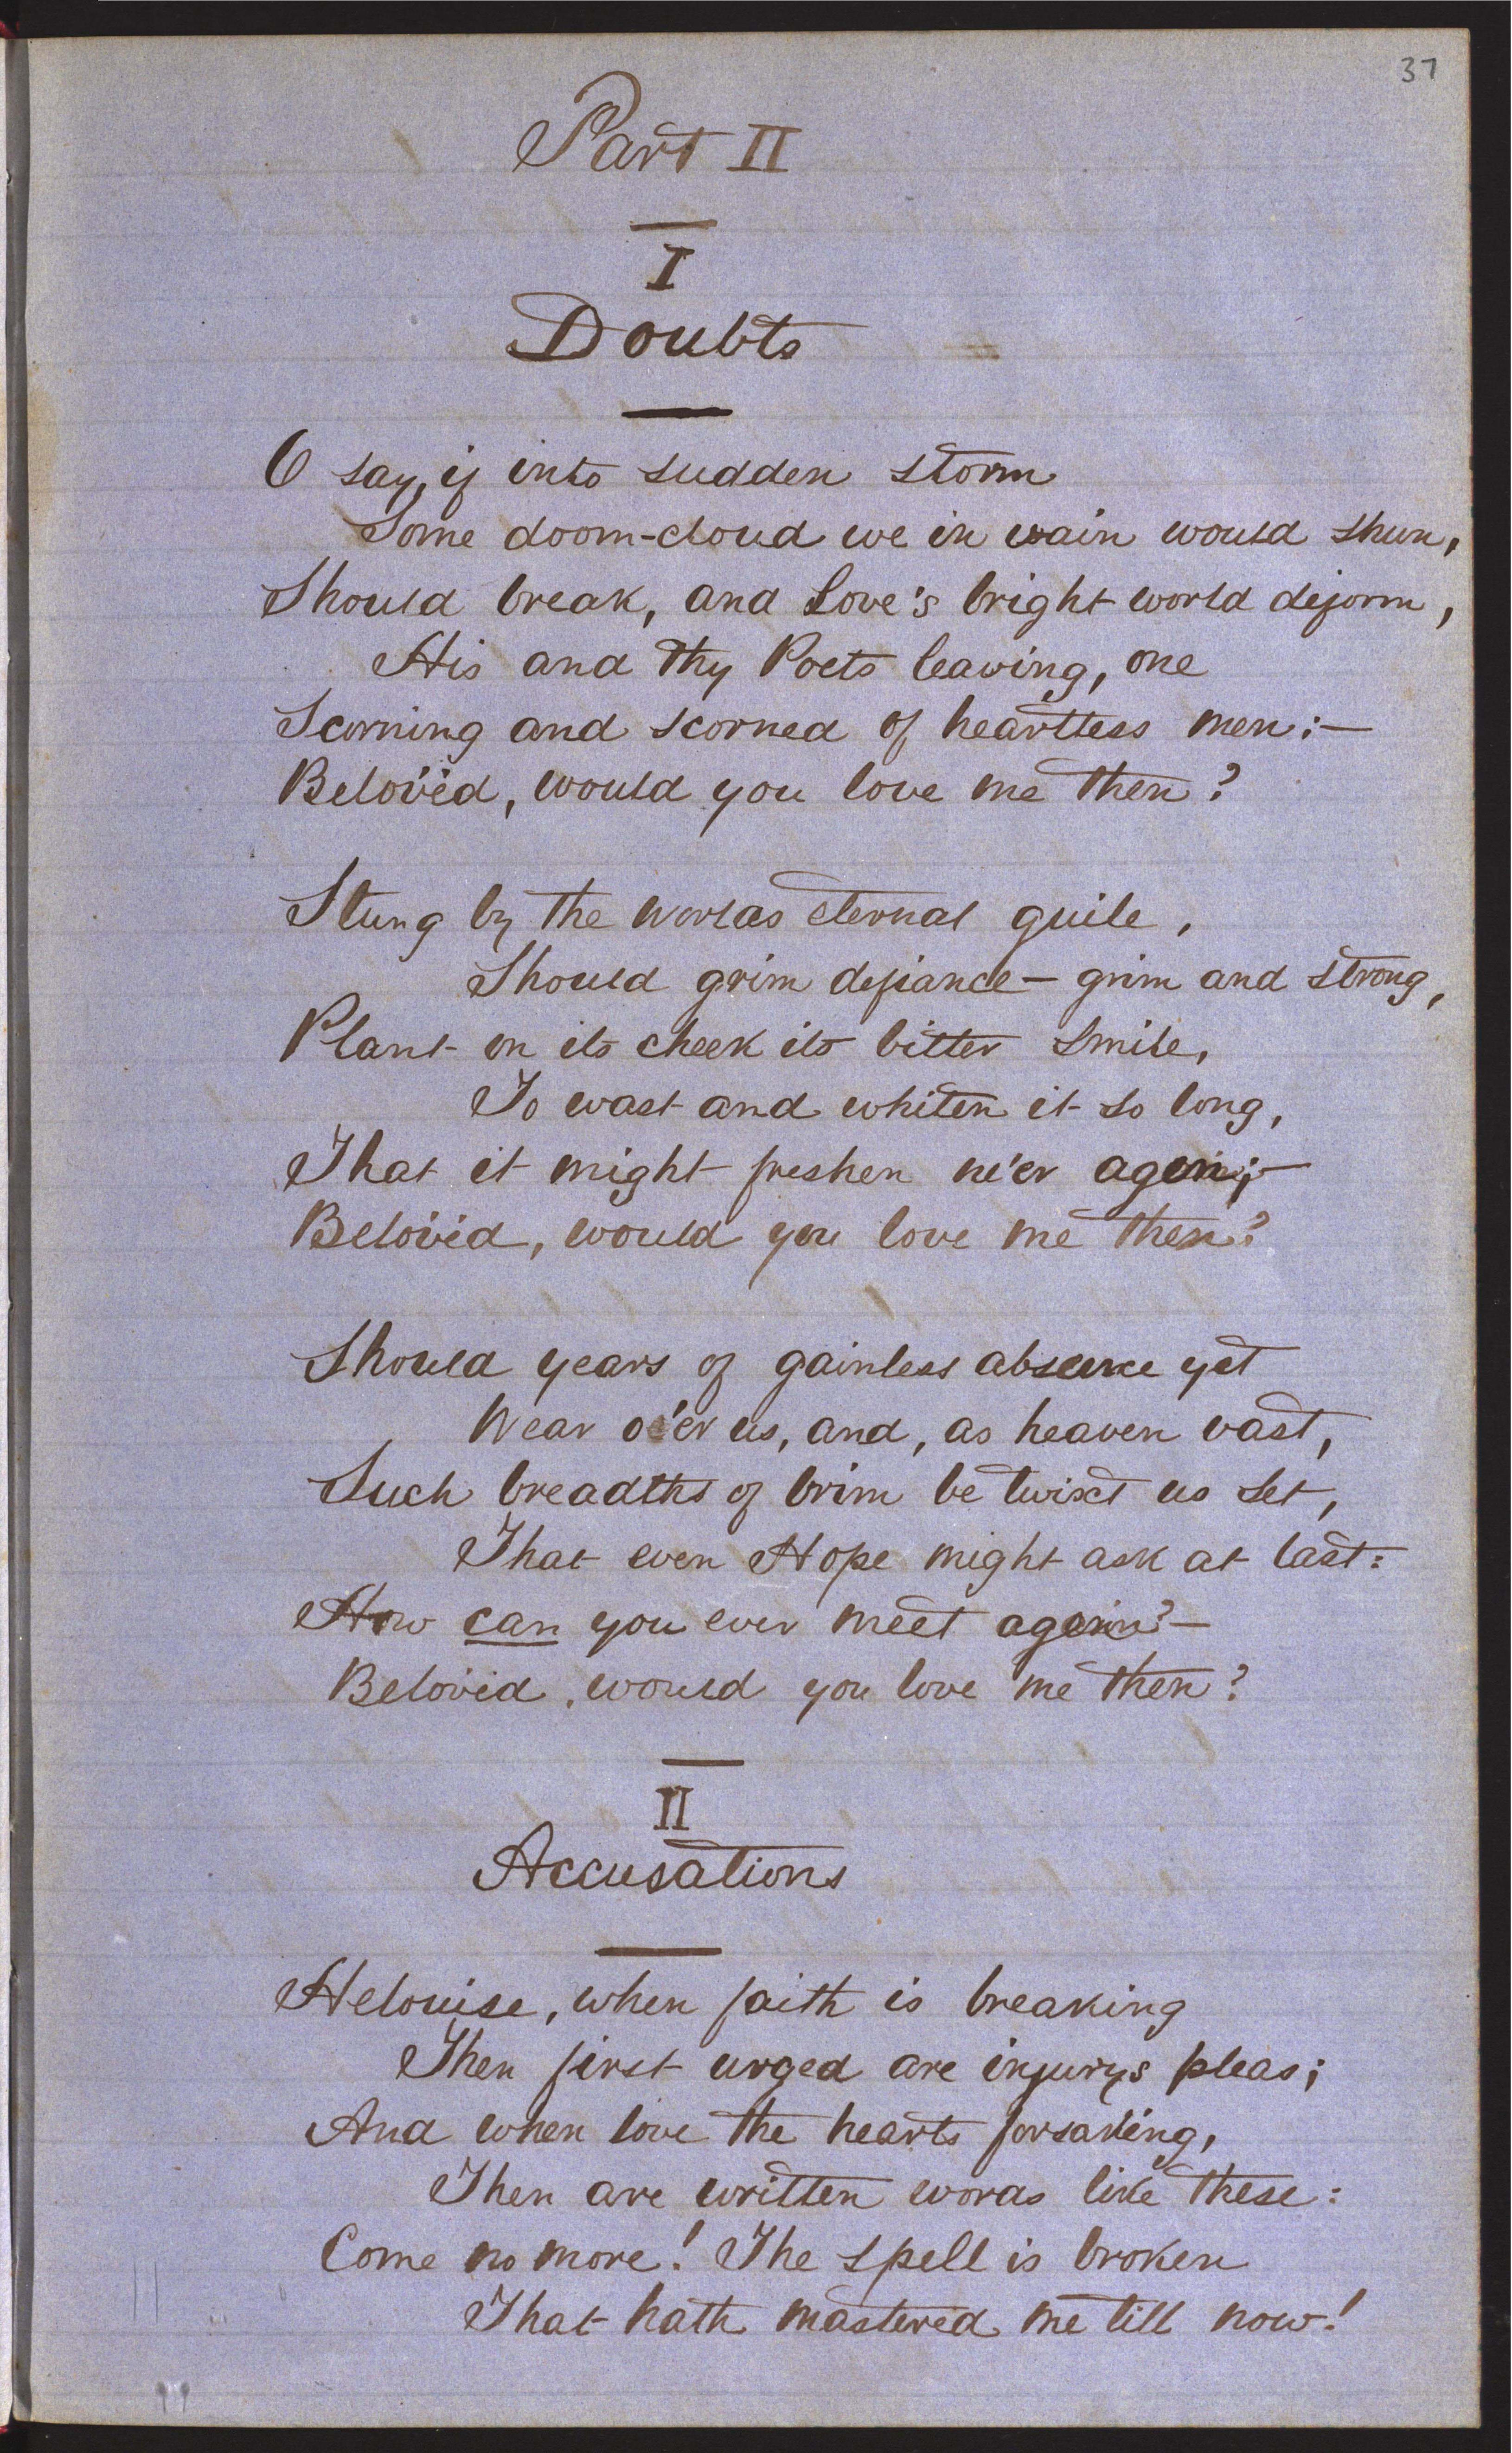 37
Part II
I
Doubts
O say, if into sudden storm
Some doom-cloud we in vain would shun,
Should break, and Love's bright world deform,
His and thy Poets leaving, one
Scorning and scorned of heartless men:—
Belovéd, would you love me then?
Stung by the worlds eternal guile,
Should grim defiance — grim and strong,
Plant on its cheek its bitter smile,
To wast and whiten it so long,
That it might freshen ne'er agen;—
Belovéd, would you love me then?
Should years of gainless absence yet
Wear o'er us, and, as heaven vast,
Such breadths of brim be twixt us set,
That even Hope might ask at last:
How can you ever meet again?—
Belovéd, would you love me then?
II
Accusations
Helouise, when faith is breaking
Then first urged are injurys pleas;
And when love the hearts forsaking,
Then are written words like these:
Come no more! The spell is broken
That hath mastered me till now!